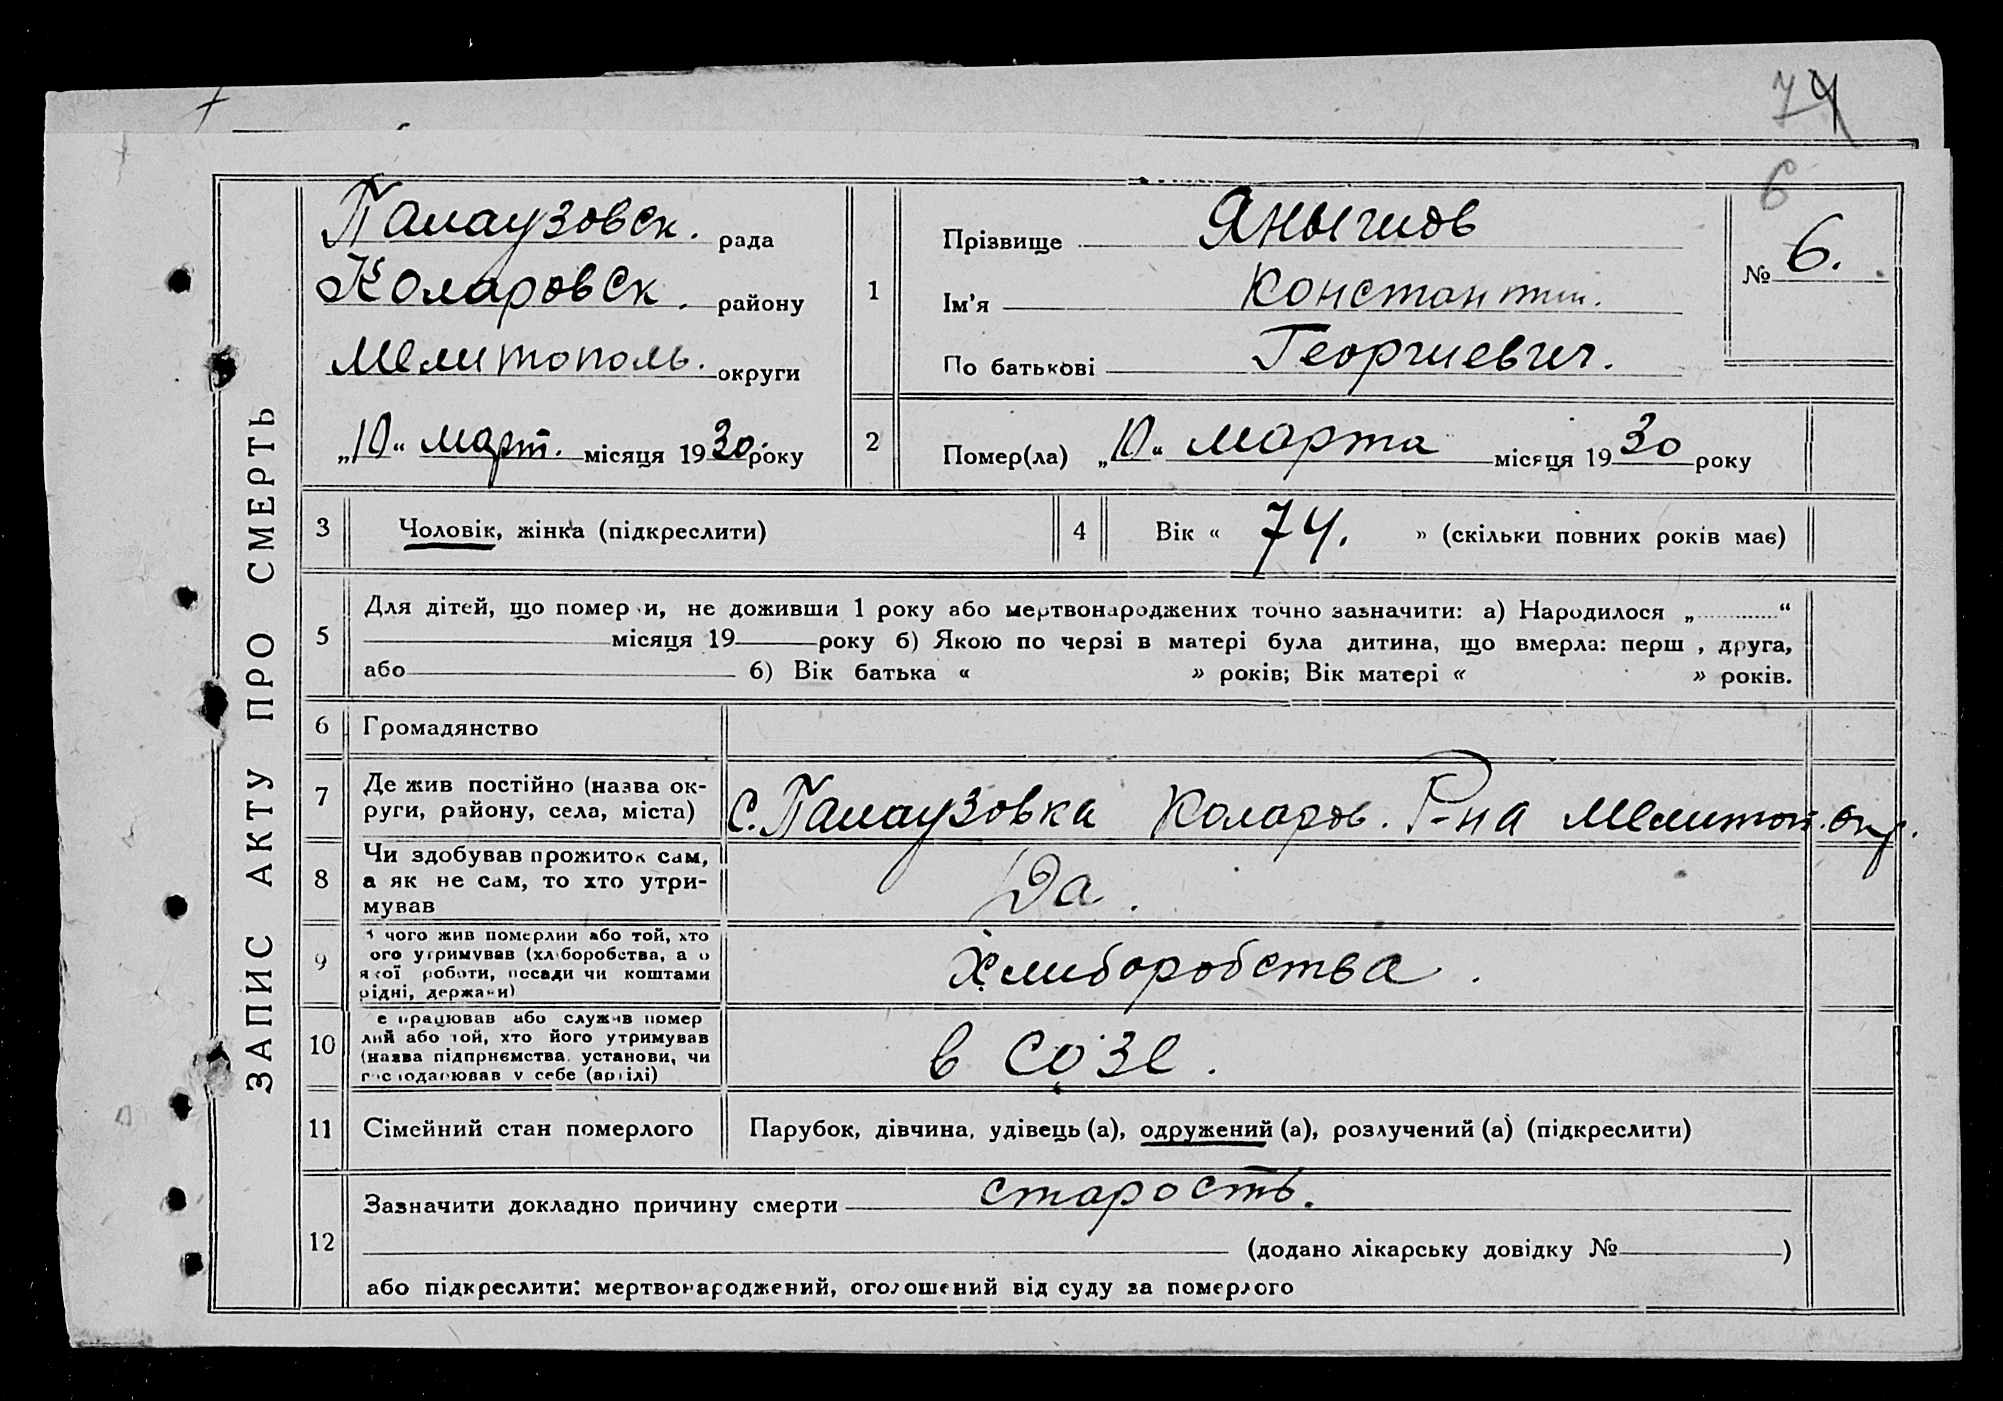 74
6
ЗАПИС АКТУ ПРО СМЕРТЬ
Палаузовск. рада
Коларовск. району
Мелитополь. округи
„10“ март. місяця 1930 року
1
Прізвище Янычиов
Ім'я Константин.
По батькові Георгиевич.
№ 6.
2
Помер(ла) „10“ марта місяця 1930 року
3 Чоловік, жінка (підкреслити)
4 Вік « 74. » (скільки повних років має)
5
Для дітей, що померли, не доживши 1 року або мертвонароджених точно зазначити: а) Народилося „ “
місяця 19 року б) Якою по черзі в матері була дитина, що вмерла: перш , друга,
або б) Вік батька « » років; Вік матері « » років.
6 Громадянство
7 Де жив постійно (назва ок-
руги, району, села, міста)
с. Палаузовка Коларов. Р-на Мелитоп. окр.
8 Чи здобував прожиток сам,
а як не сам, то хто утри-
мував
Да.
9 чого жив померлий або той, хто
ого утримував (хліборобства, а о
якої роботи, посади чи коштами
рідні, держави)
Хлиборобства.
10 е працював або служив помер
лий або той, хто його утримував
(назва підприємства, установи, чи
господарював у себе (артілі)
в созе.
11 Сімейний стан померлого
Парубок, дівчина, удівець (а), одружений (а), розлучений (а) (підкреслити)
12
Зазначити докладно причину смерти старость.
(додано лікарську довідку № )
або підкреслити: мертвонароджений, оголошений від суду за померлого